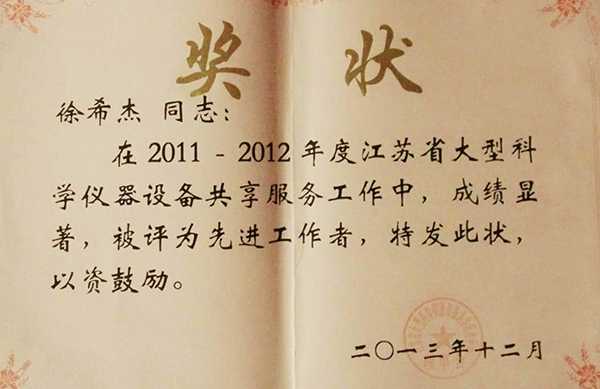 奖状
徐希杰 同志：
在 2011 - 2012 年度江苏省大型科
学仪器设备共享服务工作中，成绩显
著，被评为先进工作者，特发此状，
以资鼓励。
二〇一三年十二月